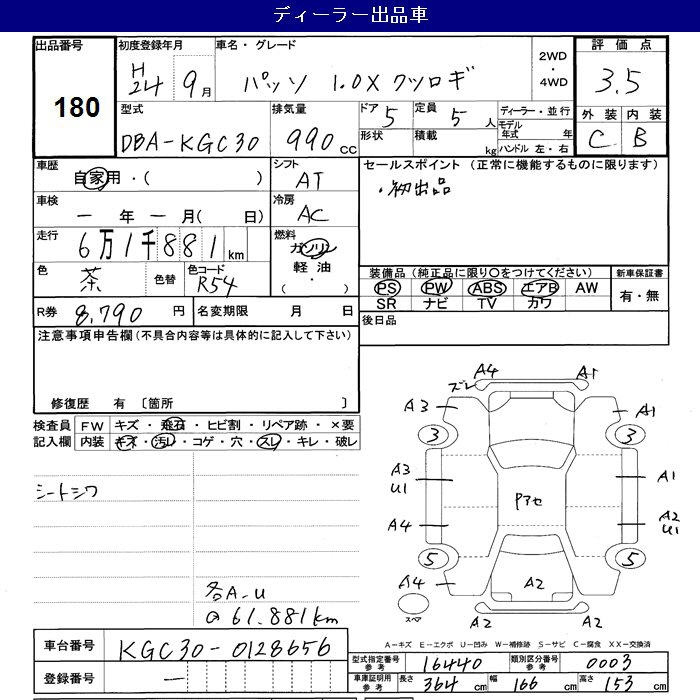 ディーラー出品車
出品番号 180
初度登録年月 H24 9月
車名・グレード パッソ 1.0X クツロギ
2WD・4WD
評価点 3.5
型式 DBA-KGC30
排気量 990cc
ドア 5 形状
定員 5人 積載 kg
ディーラー・並行
モデル年式 年
ハンドル 左・右
外装 内装
C B
車歴 自家用・( )
シフト AT
セールスポイント (正常に機能するものに限ります)
・初出品
車検 ー年ー月( 日)
冷房 AC
走行 6万1千881km
燃料 ガソリン 軽油 ( ・ )
色 茶 色替 色コード R54
装備品(純正品に限り○をつけてください)
PS PW ABS エアB AW
SR ナビ TV カワ
新車保証書 有・無
R券 8,790円 名変期限 月 日
後日品
注意事項申告欄(不具合内容等は具体的に記入して下さい)
修復歴 有 〔箇所 〕
検査員記入欄
FW キズ・飛石・ヒビ割・リペア跡・×要
内装 キズ・汚レ・コゲ・穴・スレ・キレ・破レ
シートシワ
各A-U
61.881km
A4 A1
ズレ
A3 A1
3 3
A3 U1 A1
Pアセ
A4 A2 U1
5 5
A4 A2
スペア
A2 A2
A-キズ E-エクボ U-凹み W-補修跡 S-サビ C-腐食 XX-交換済
車台番号 KGC30-0128656
登録番号 ー
型式指定番号 参考 16440 類別区分番号 参考 0003
車庫証明用 参考 長さ 364cm 幅 166cm 高さ 153cm